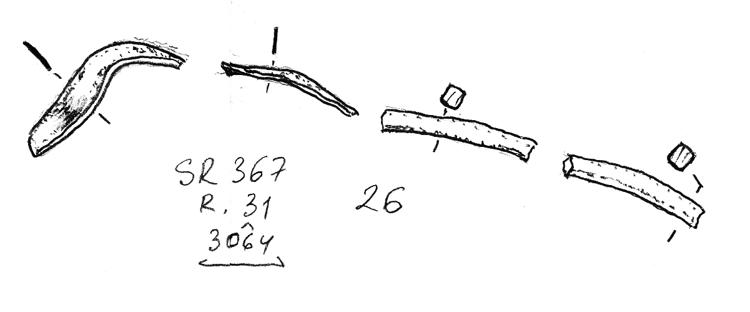 SR 367
R. 31
3064
26